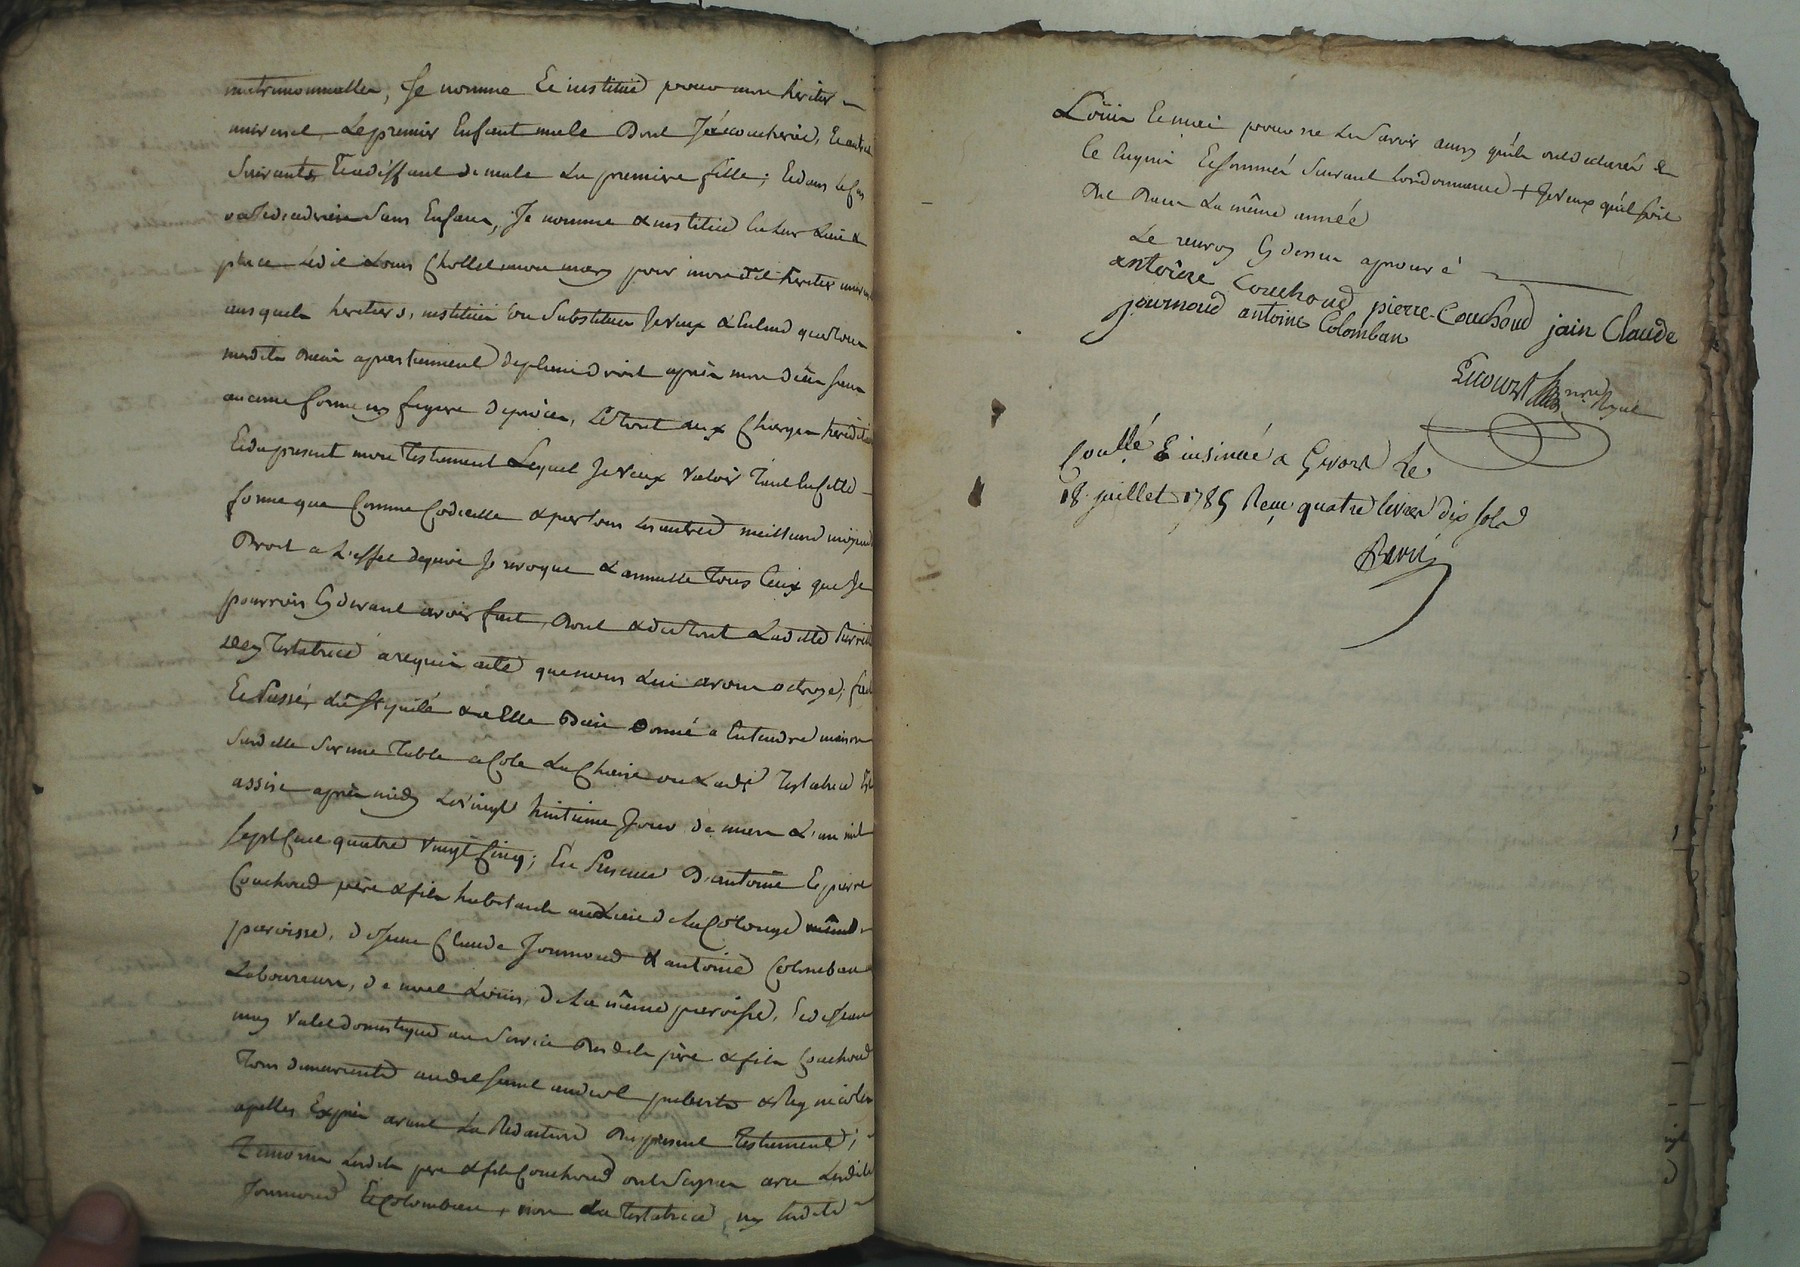 matrimonialles, Je nomme Et institue pour mon heritier
universel Le premier Enfant male Dont J'accoucherai, Et autres
Suivants Et a deffaut de male La premiere fille; Et dans le cas
Sans Enfans, Je nomme & institue en leur Lieu &
place Ledit Louis Chollet mon mary pour mon dit heritier universel
ausquels heritiers, institué ou Substitué Je Veux & Entend que tous
mesdits Biens apartiennent de plein droit après mon décès sans
aucune forme ny figure de procès, Le tout aux Charges hereditaires
Et du present mon Testament Lequel Je Veux Valoir Tant en cette
forme que Comme Codicille & par tous les autres meilleurs moyens
Droit a L'effet de quoi Je revoque & annulle Tous Ceux que Je
pourrois Cy devant avoir fait, Dont & du tout Laditte
Testatrice a requis acte que nous Lui avons octroyé, fait
Et Passé, Lû & a Elle Bien Donné a Entendre maison
Sur une Table a Coté La Chaise ou Ladite Testatrice Est
assise après midy Le Vingt huitieme Jour de mars L'an mil
Sept Cent quatre Vingt Cinq; En Presence D'antoine Et pierre
Couchoud père & fils habitants au Lieu de La Colonge même
paroisse, de Jean Claude Journoud & antoine Colomban
Laboureurs, de noel Louis, de La même paroisse, Et de Jean
may Valet domestique au Service Desdits père & fils Couchoud
Tous demeurants audit Saint andeol puberts & Regnicoles
apellés Exprès avant La Redaction Du present Testament;
Temoins Lesdits père & fils Couchoud ont Signés avec Lesdits
Journoud Et Colomban, non La Testatrice ny Lesdits
Louis Et mai pour ne Le Savoir ainsy qu'ils ont declarés de
Ce Enquis Et Sommés Suivant Lordonnance + Je Veux qu'il soit
Dit Dans La même année
Le renvoy Cy dessus aprouvé
antoine Couchoud pierre Couchoud jain Claude
journoud antoine Colomban
Not. Royal
Conllé & insinué a Givors Le
18. juillet 1785 Reçu quatre livres dix sols